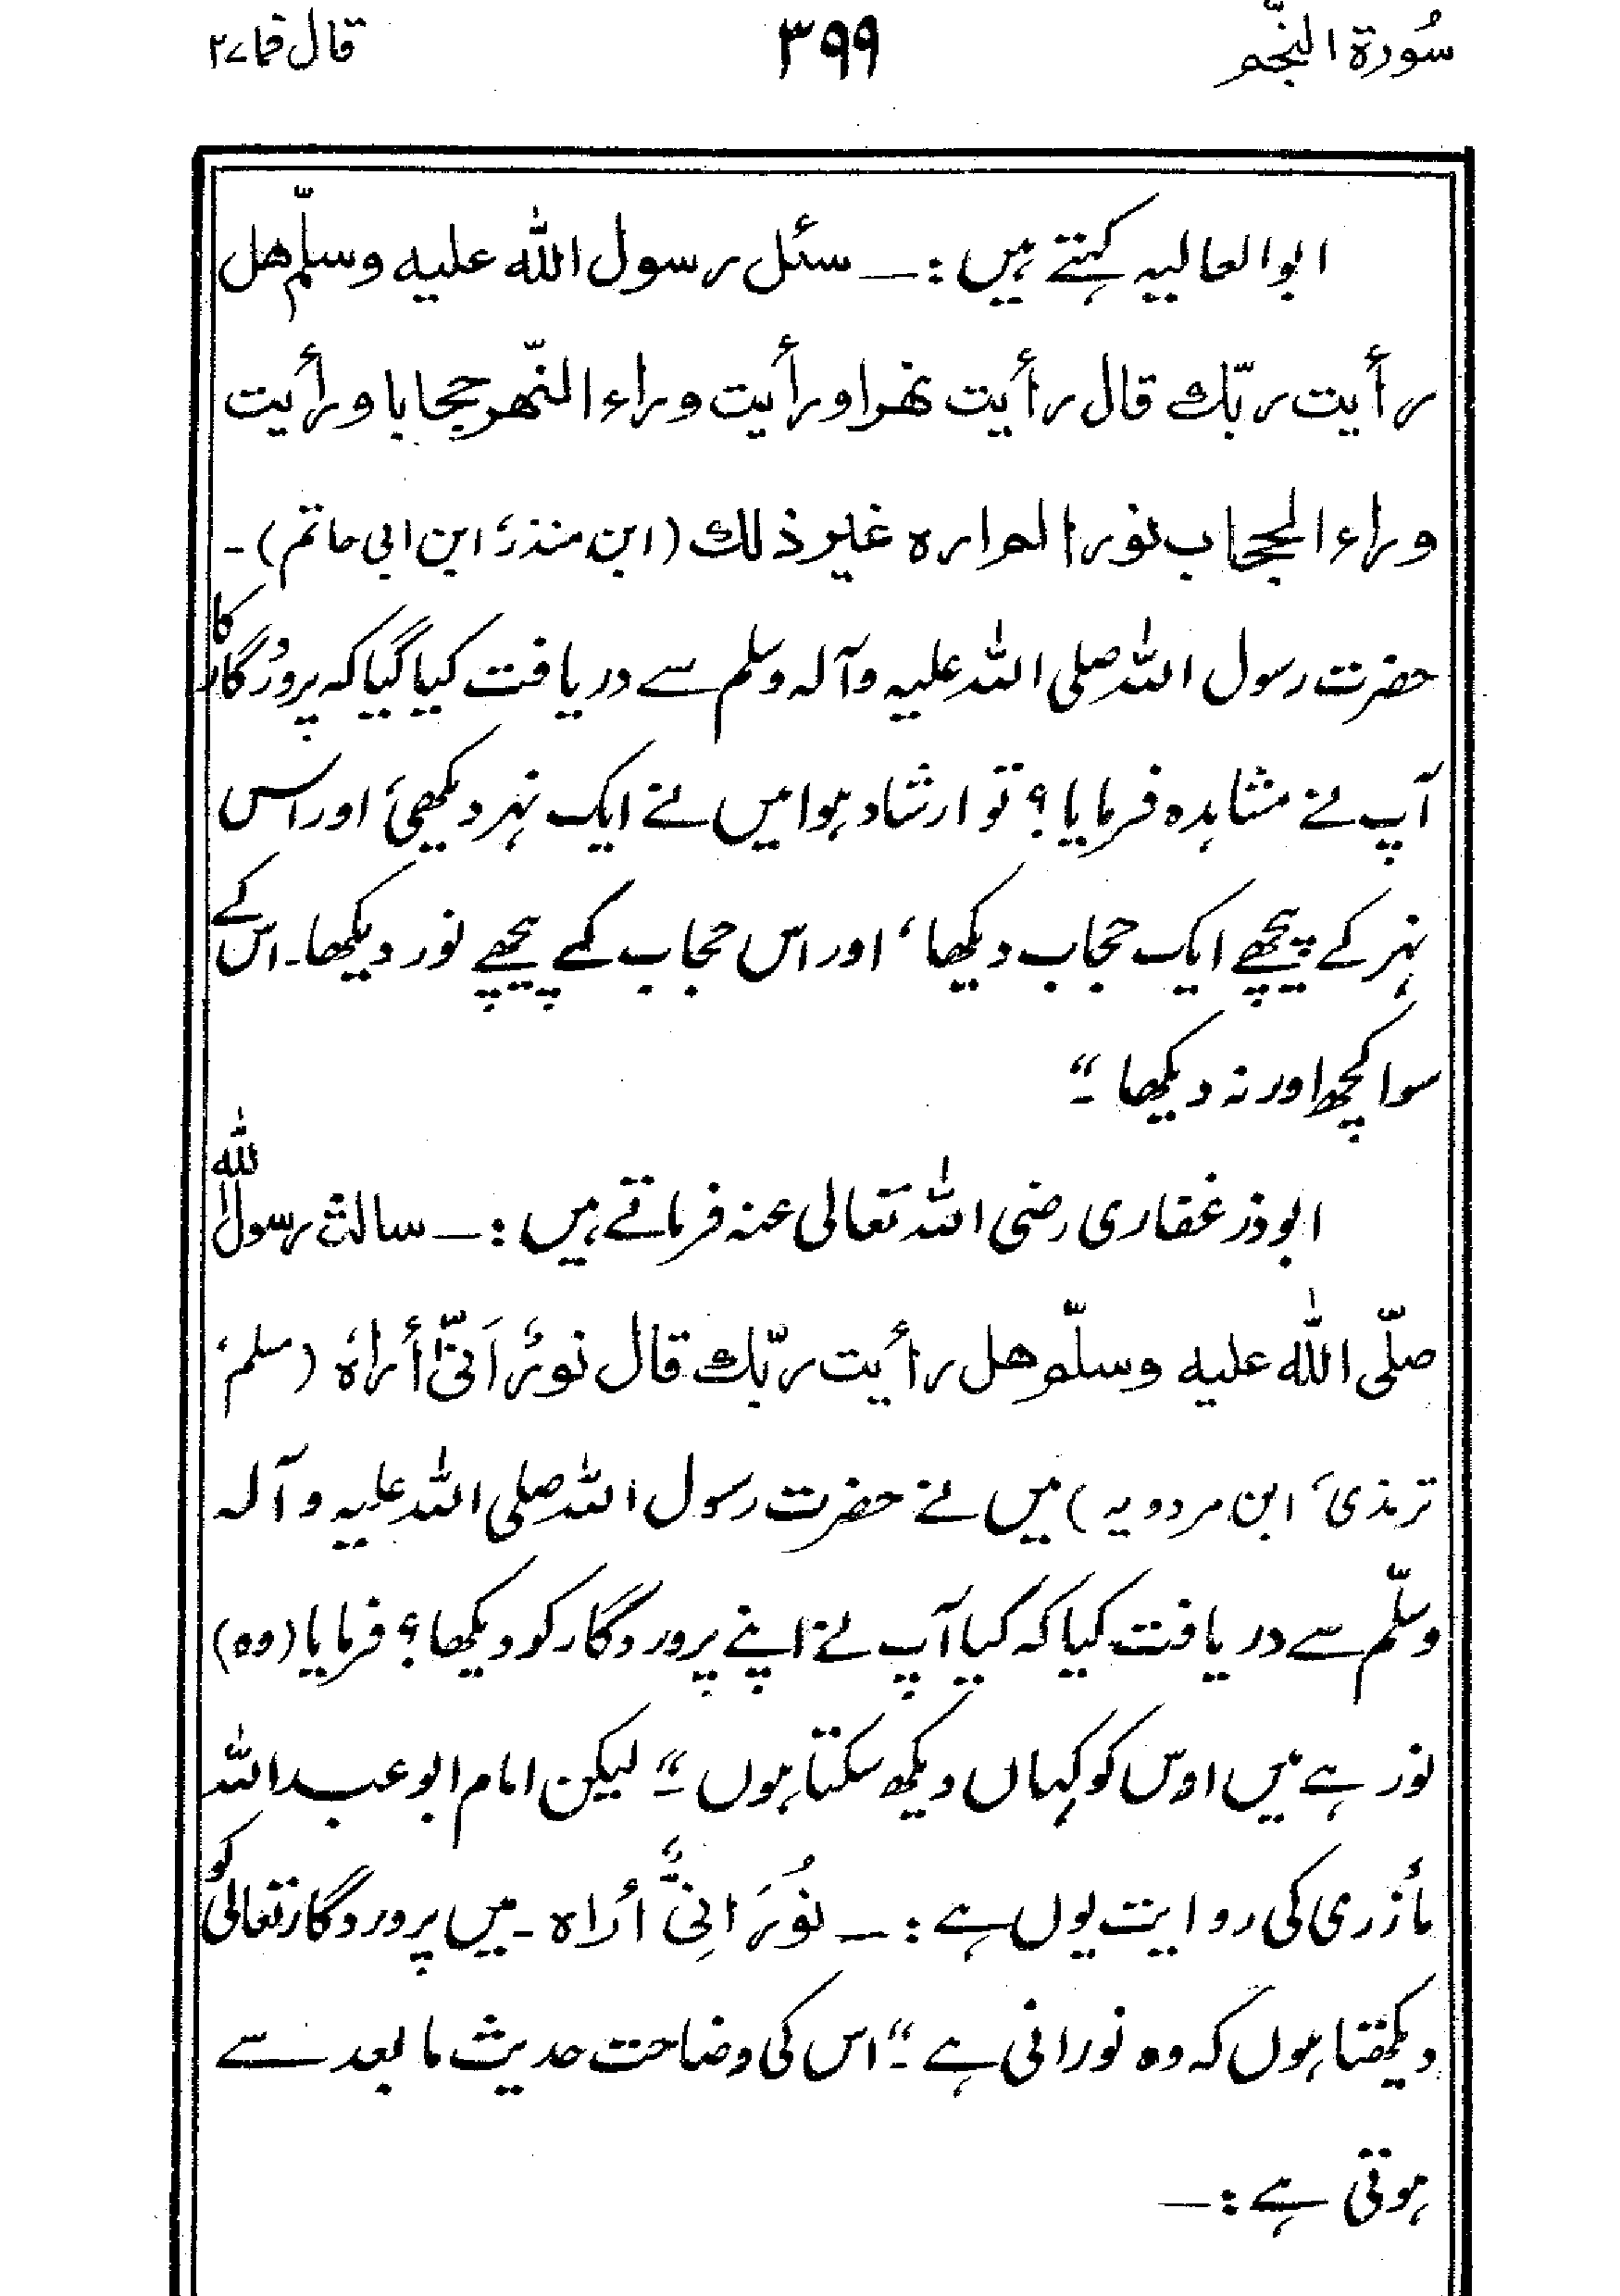 سُورة النّجم ٣٩٩ قال فما ۲۷
ابوالعالیہ کہتے ہیں :ـ سئل رسول الله علیه وسلّم هل
رأیت ربّك قال رأیت نهرا ورأیت وراء النّهر حجابا ورأیت
وراء الحجاب نورا لم اره غیر ذلك (ابن منذر، ابن ابی حاتم)۔
حضرت رسول اللہ صلی اللہ علیہ وآلہ وسلم سے دریافت کیا گیا کہ پروردگار کا
آپ نے مشاہدہ فرمایا ؟ تو ارشاد ہوا میں نے ایک نہر دیکھی، اور اس
نہر کے پیچھے ایک حجاب دیکھا، اور اس حجاب کے پیچھے نور دیکھا۔ اس کے
سوا کچھ اور نہ دیکھا۔“
ابوذر غفاری رضی اللہ تعالی عنہ فرماتے ہیں :ـ سالت رسول الله
صلّی الله علیه وسلّم هل رأیت ربّك قال نورٌ اَنّیٰ أراہُ (مسلم،
ترمذی، ابن مردویہ) میں نے حضرت رسول اللہ صلی اللہ علیہ وآلہ
وسلّم سے دریافت کیا کہ کیا آپ نے اپنے پروردگار کو دیکھا ؟ فرمایا (وہ)
نور ہے میں اوس کو کہاں دیکھ سکتا ہوں۔“ لیکن امام ابو عبداللہ
مأزری کی روایت یوں ہے :ـ نُورَانِیٌّ أراہ۔ میں پروردگار تعالی کو
دیکھتا ہوں کہ وہ نورانی ہے۔“ اس کی وضاحت حدیث مابعد سے
ہوتی ہے :ـ